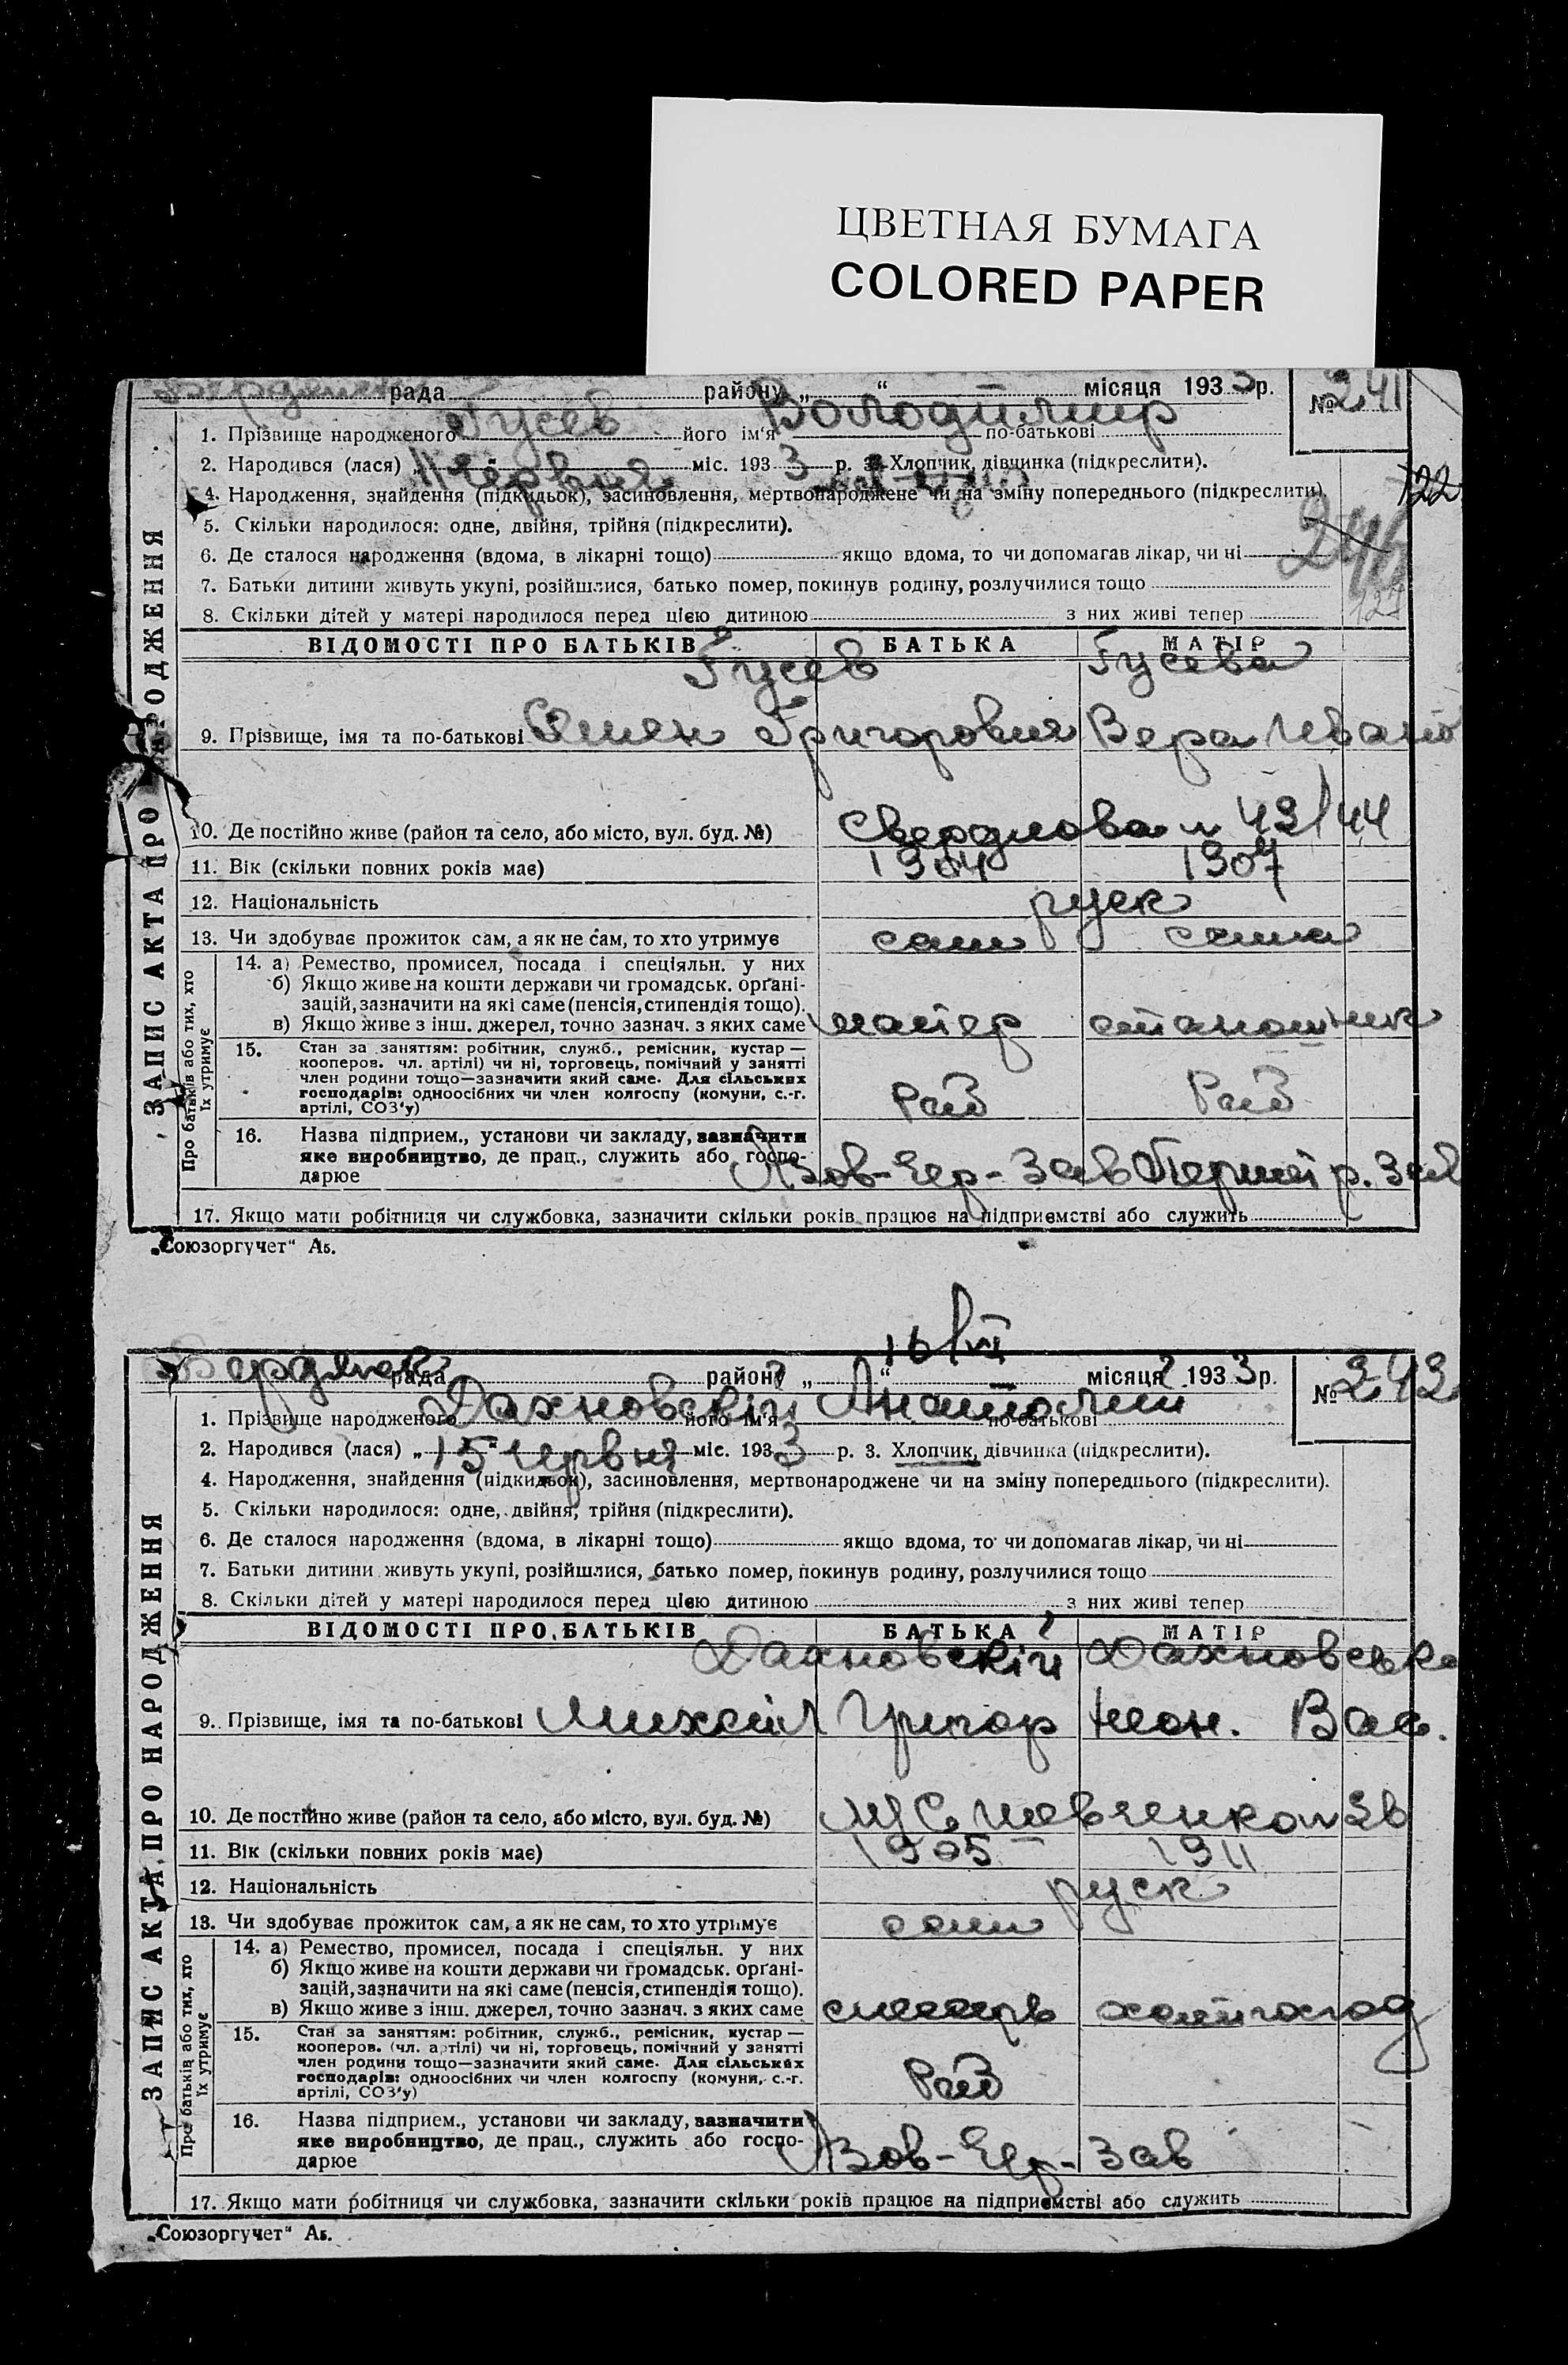 ЦВЕТНАЯ БУМАГА
COLORED PAPER
рада району „ “ місяця 1933 р. № 241
1. Прізвище народженого Гусев його ім'я Володимир по-батькові
2. Народився (лася) „11“ червня міс. 1933 р. 3. Хлопчик, дівчинка (підкреслити).
4. Народження, знайдення (підкидьок), засиновлення, мертвонароджене чи на зміну попереднього (підкреслити). 122
5. Скільки народилося: одне, двійня, трійня (підкреслити).
6. Де сталося народження (вдома, в лікарні тощо) якщо вдома, то чи допомагав лікар, чи ні
7. Батьки дитини живуть укупі, розійшлися, батько помер, покинув родину, розлучилися тощо
8. Скільки дітей у матері народилося перед цією дитиною з них живі тепер
ЗАПИС АКТА ПРО НАРОДЖЕННЯ
ВІДОМОСТІ ПРО БАТЬКІВ БАТЬКА МАТІР
Гусев Гусева
9. Прізвище, імя та по-батькові Семен Григорович Вера Ивано
10. Де постійно живе (район та село, або місто, вул. буд. №) Свердлова 42/44
11. Вік (скільки повних років має) 1904 1907
12. Національність руск
13. Чи здобуває прожиток сам, а як не сам, то хто утримує сам сама
Про батьків або тих, хто їх утримує
14. а) Ремество, промисел, посада і спеціяльн. у них
б) Якщо живе на кошти держави чи громадськ. орґані-
зацій, зазначити на які саме (пенсія, стипендія тощо).
в) Якщо живе з інш. джерел, точно зазнач. з яких саме
15. Стан за заняттям: робітник, служб., ремісник, кустар —
кооперов. чл. артілі) чи ні, торговець, помічний у занятті
член родини тощо—зазначити який саме. Для сільських
господарів: одноосібних чи член колгоспу (комуни, с.-г.
артілі, СОЗ'у)
Раб Раб
16. Назва підприєм., установи чи закладу, зазначити
яке виробництво, де прац., служить або госпо-
дарює
Азов-Чер-Зав Перший р. Зав
17. Якщо мати робітниця чи службовка, зазначити скільки років працює на підприємстві або служить
„Союзоргучет“ Аб.
16/VI
Бердянск рада району „ “ місяця 1933 р. № 242
1. Прізвище народженого Дахновскій його ім'я Анатолий по-батькові
2. Народився (лася) „15“ червня міс. 1933 р. 3. Хлопчик, дівчинка (підкреслити).
4. Народження, знайдення (підкидьок), засиновлення, мертвонароджене чи на зміну попереднього (підкреслити).
5. Скільки народилося: одне, двійня, трійня (підкреслити).
6. Де сталося народження (вдома, в лікарні тощо) якщо вдома, то чи допомагав лікар, чи ні
7. Батьки дитини живуть укупі, розійшлися, батько помер, покинув родину, розлучилися тощо
8. Скільки дітей у матері народилося перед цією дитиною з них живі тепер
ЗАПИС АКТА ПРО НАРОДЖЕННЯ
ВІДОМОСТІ ПРО БАТЬКІВ БАТЬКА МАТІР
Дахновскій Дахновська
9. Прізвище, імя та по-батькові Михаіл Григор Леон. Вас.
10. Де постійно живе (район та село, або місто, вул. буд. №) Шевченко
11. Вік (скільки повних років має) 1905 1911
12. Національність руск
13. Чи здобуває прожиток сам, а як не сам, то хто утримує сам
Про батьків або тих, хто їх утримує
14. а) Ремество, промисел, посада і спеціяльн. у них
б) Якщо живе на кошти держави чи громадськ. орґані-
зацій, зазначити на які саме (пенсія, стипендія тощо).
в) Якщо живе з інш. джерел, точно зазнач. з яких саме
15. Стан за заняттям: робітник, служб., ремісник, кустар —
кооперов. (чл. артілі) чи ні, торговець, помічний у занятті
член родини тощо—зазначити який саме. Для сільських
господарів: одноосібних чи член колгоспу (комуни, с.-г.
артілі, СОЗ'у)
Раб
16. Назва підприєм., установи чи закладу, зазначити
яке виробництво, де прац., служить або госпо-
дарює
Азов-Чер-Зав
17. Якщо мати робітниця чи службовка, зазначити скільки років працює на підприємстві або служить
„Союзоргучет“ Аб.